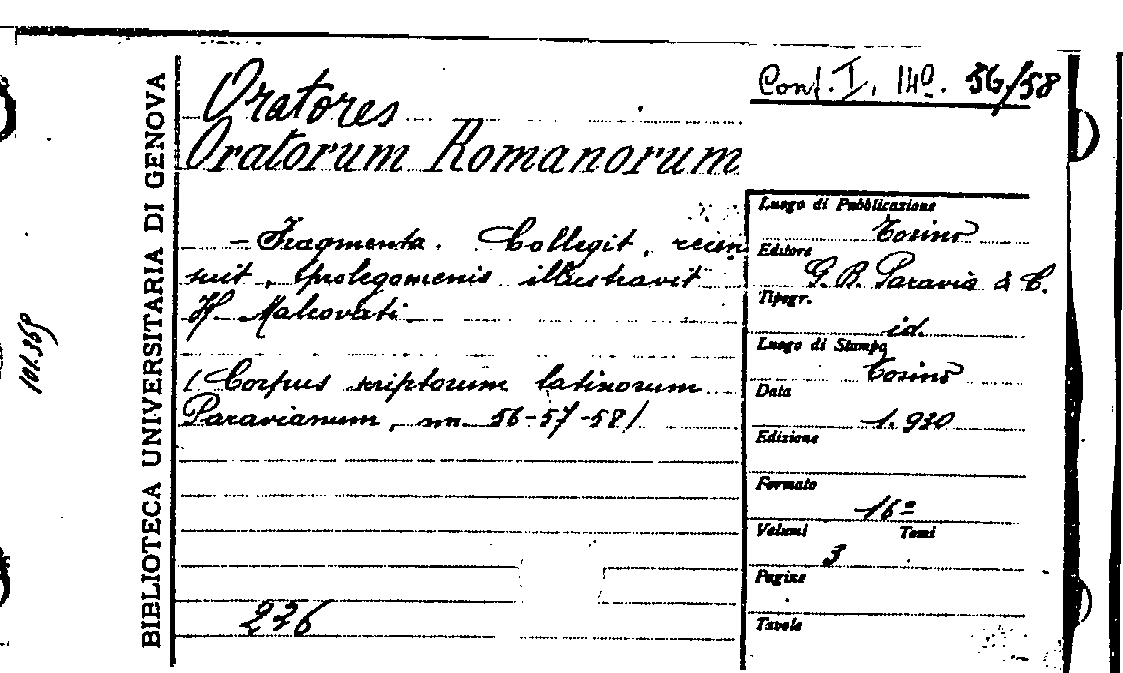 BIBLIOTECA UNIVERSITARIA DI GENOVA
101.369
Conf. I. 14º. 56/58
Oratores
Oratorum Romanorum
- Fragmenta. Collegit, recen
suit, prolegomenis illustravit
H. Malcovati
(Corpus scriptorum latinorum
Paravianum, nn. 56-57-58)
226
Luogo di Pubblicazione
Torino
Editore
G. B. Paravia & C.
Tipogr.
id.
Luogo di Stampa
Torino
Data
1.930
Edizione
Formato
16º
Volumi Tomi
3
Pagine
Tavole